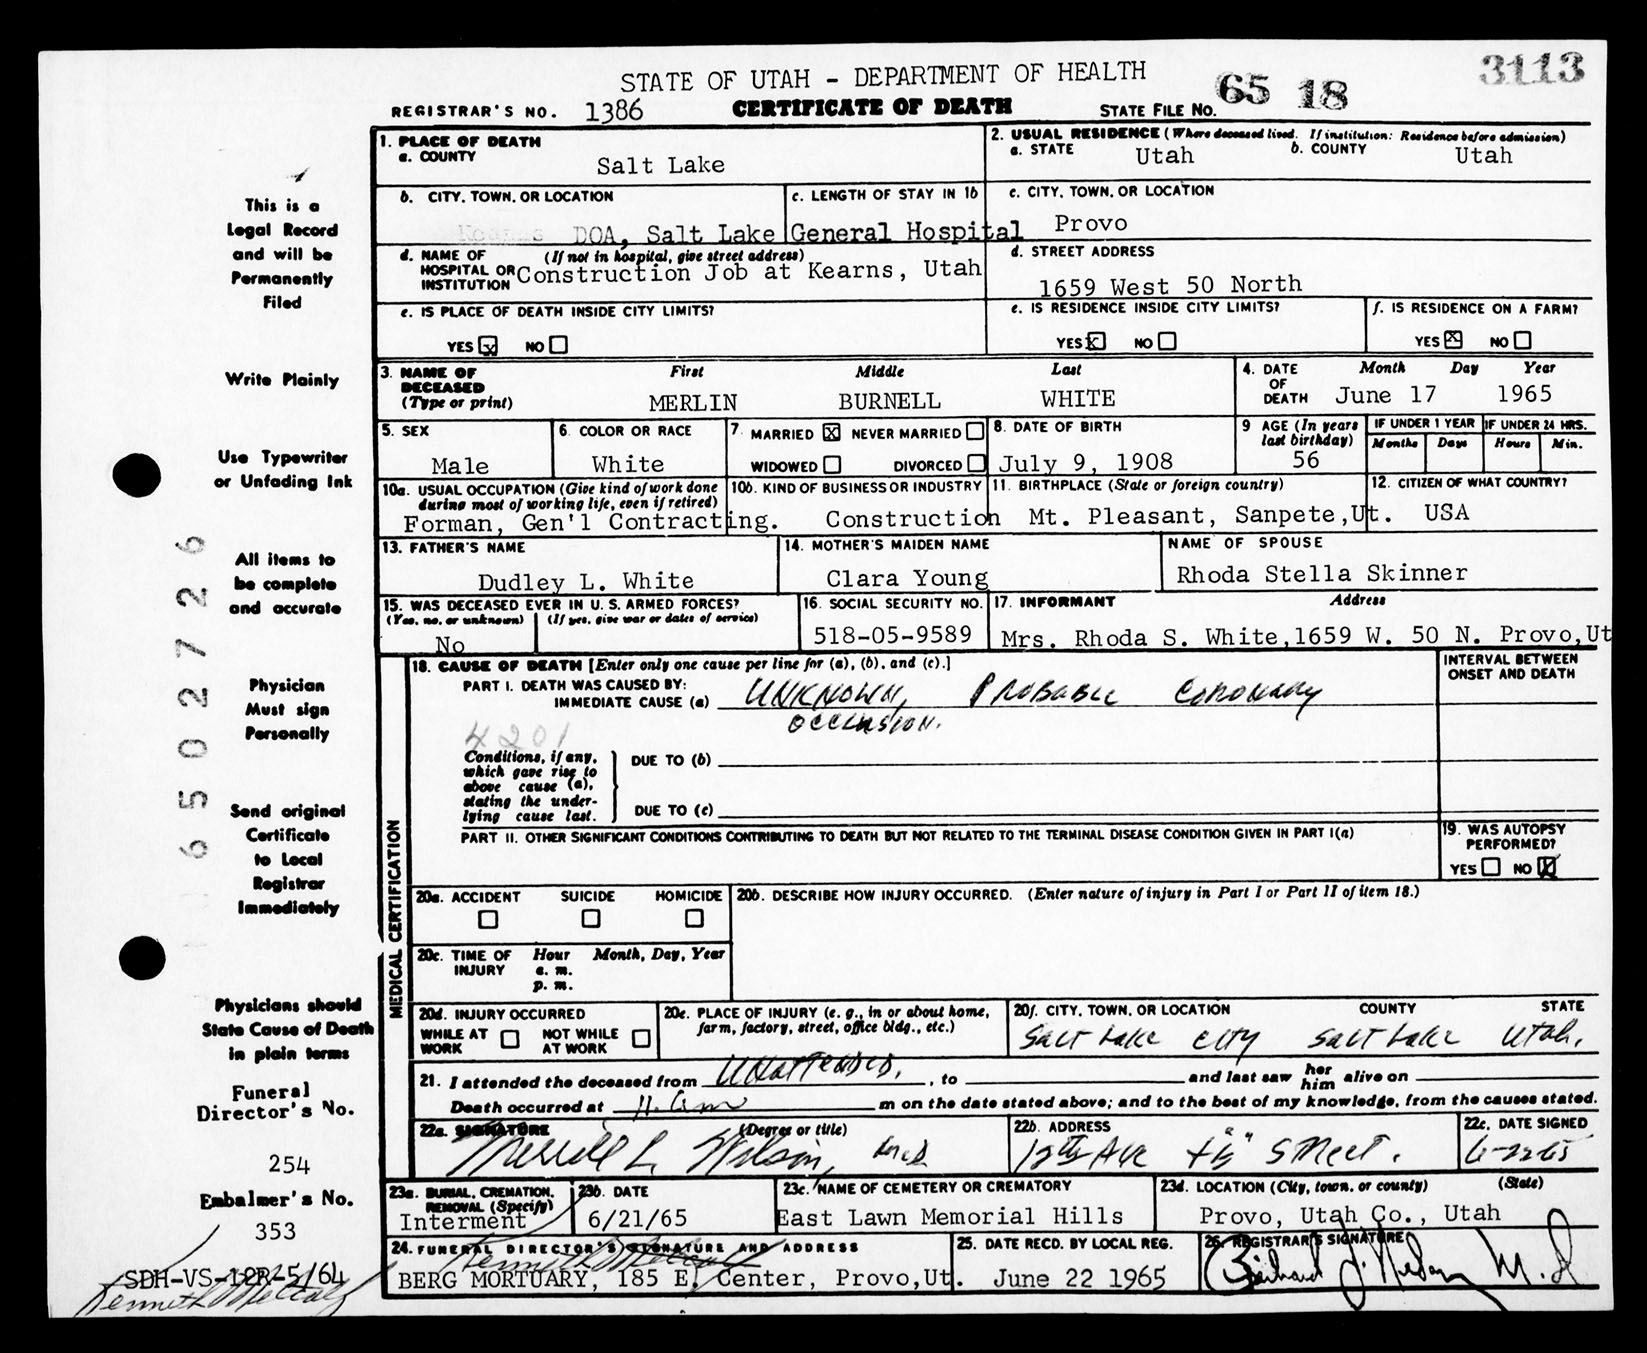 3113
STATE OF UTAH - DEPARTMENT OF HEALTH
65 18
REGISTRAR'S NO. 1386 CERTIFICATE OF DEATH STATE FILE NO.
1. PLACE OF DEATH
a. COUNTY
Salt Lake
2. USUAL RESIDENCE (Where deceased lived. If institution: Residence before admission)
a. STATE Utah b. COUNTY Utah
b. CITY, TOWN, OR LOCATION
c. LENGTH OF STAY IN 1b
DOA, Salt Lake General Hospital
c. CITY, TOWN, OR LOCATION
Provo
d. NAME OF (If not in hospital, give street address)
HOSPITAL OR
INSTITUTION Construction Job at Kearns, Utah
d. STREET ADDRESS
1659 West 50 North
e. IS PLACE OF DEATH INSIDE CITY LIMITS?
YES x NO
e. IS RESIDENCE INSIDE CITY LIMITS?
YES x NO
f. IS RESIDENCE ON A FARM?
YES x NO
3. NAME OF DECEASED (Type or print)
First Middle Last
MERLIN BURNELL WHITE
4. DATE OF DEATH
Month Day Year
June 17 1965
5. SEX
Male
6. COLOR OR RACE
White
7. MARRIED x NEVER MARRIED
WIDOWED DIVORCED
8. DATE OF BIRTH
July 9, 1908
9 AGE (In years last birthday)
56
IF UNDER 1 YEAR
Months Days
IF UNDER 24 HRS.
Hours Min.
10a. USUAL OCCUPATION (Give kind of work done during most of working life, even if retired)
Forman, Gen'l Contracting.
10b. KIND OF BUSINESS OR INDUSTRY
Construction
11. BIRTHPLACE (State or foreign country)
Mt. Pleasant, Sanpete, Ut.
12. CITIZEN OF WHAT COUNTRY?
USA
13. FATHER'S NAME
Dudley L. White
14. MOTHER'S MAIDEN NAME
Clara Young
NAME OF SPOUSE
Rhoda Stella Skinner
15. WAS DECEASED EVER IN U. S. ARMED FORCES?
(Yes, no, or unknown) (If yes, give war or dates of service)
No
16. SOCIAL SECURITY NO.
518-05-9589
17. INFORMANT Address
Mrs. Rhoda S. White, 1659 W. 50 N. Provo, Ut
MEDICAL CERTIFICATION
18. CAUSE OF DEATH [Enter only one cause per line for (a), (b), and (c).]
PART I. DEATH WAS CAUSED BY:
IMMEDIATE CAUSE (a) UNKNOWN, PROBABLE CORONARY
OCCLUSION.
4201
Conditions, if any,
which gave rise to
above cause (a),
stating the under-
lying cause last.
DUE TO (b)
DUE TO (c)
INTERVAL BETWEEN
ONSET AND DEATH
PART II. OTHER SIGNIFICANT CONDITIONS CONTRIBUTING TO DEATH BUT NOT RELATED TO THE TERMINAL DISEASE CONDITION GIVEN IN PART I(a)
19. WAS AUTOPSY
PERFORMED?
YES NO x
20a. ACCIDENT SUICIDE HOMICIDE
20b. DESCRIBE HOW INJURY OCCURRED. (Enter nature of injury in Part I or Part II of item 18.)
20c. TIME OF INJURY
Hour Month, Day, Year
a. m.
p. m.
20d. INJURY OCCURRED
WHILE AT WORK NOT WHILE AT WORK
20e. PLACE OF INJURY (e. g., in or about home,
farm, factory, street, office bldg., etc.)
20f. CITY, TOWN, OR LOCATION COUNTY STATE
SALT LAKE CITY SALT LAKE UTAH.
21. I attended the deceased from UNATTENDED. , to and last saw her him alive on
Death occurred at 11. am m on the date stated above; and to the best of my knowledge, from the causes stated.
22a. SIGNATURE (Degree or title)
Merrill L. Wilson, M.D.
22b. ADDRESS
12th Ave + "B" STREET.
22c. DATE SIGNED
6-22-65
23a. BURIAL, CREMATION,
REMOVAL (Specify)
Interment
23b. DATE
6/21/65
23c. NAME OF CEMETERY OR CREMATORY
East Lawn Memorial Hills
23d. LOCATION (City, town, or county) (State)
Provo, Utah Co., Utah
24. FUNERAL DIRECTOR'S SIGNATURE AND ADDRESS
Kenneth Metcalf
BERG MORTUARY, 185 E. Center, Provo, Ut.
25. DATE RECD. BY LOCAL REG.
June 22 1965
26. REGISTRAR'S SIGNATURE
M.D.
This is a
Legal Record
and will be
Permanently
Filed
Write Plainly
Use Typewriter
or Unfading Ink
All items to
be complete
and accurate
Physician
Must sign
Personally
Send original
Certificate
to Local
Registrar
Immediately
Physicians should
State Cause of Death
in plain terms
Funeral
Director's No.
254
Embalmer's No.
353
SDH-VS-12R-5/64
Kenneth Metcalf
6502726